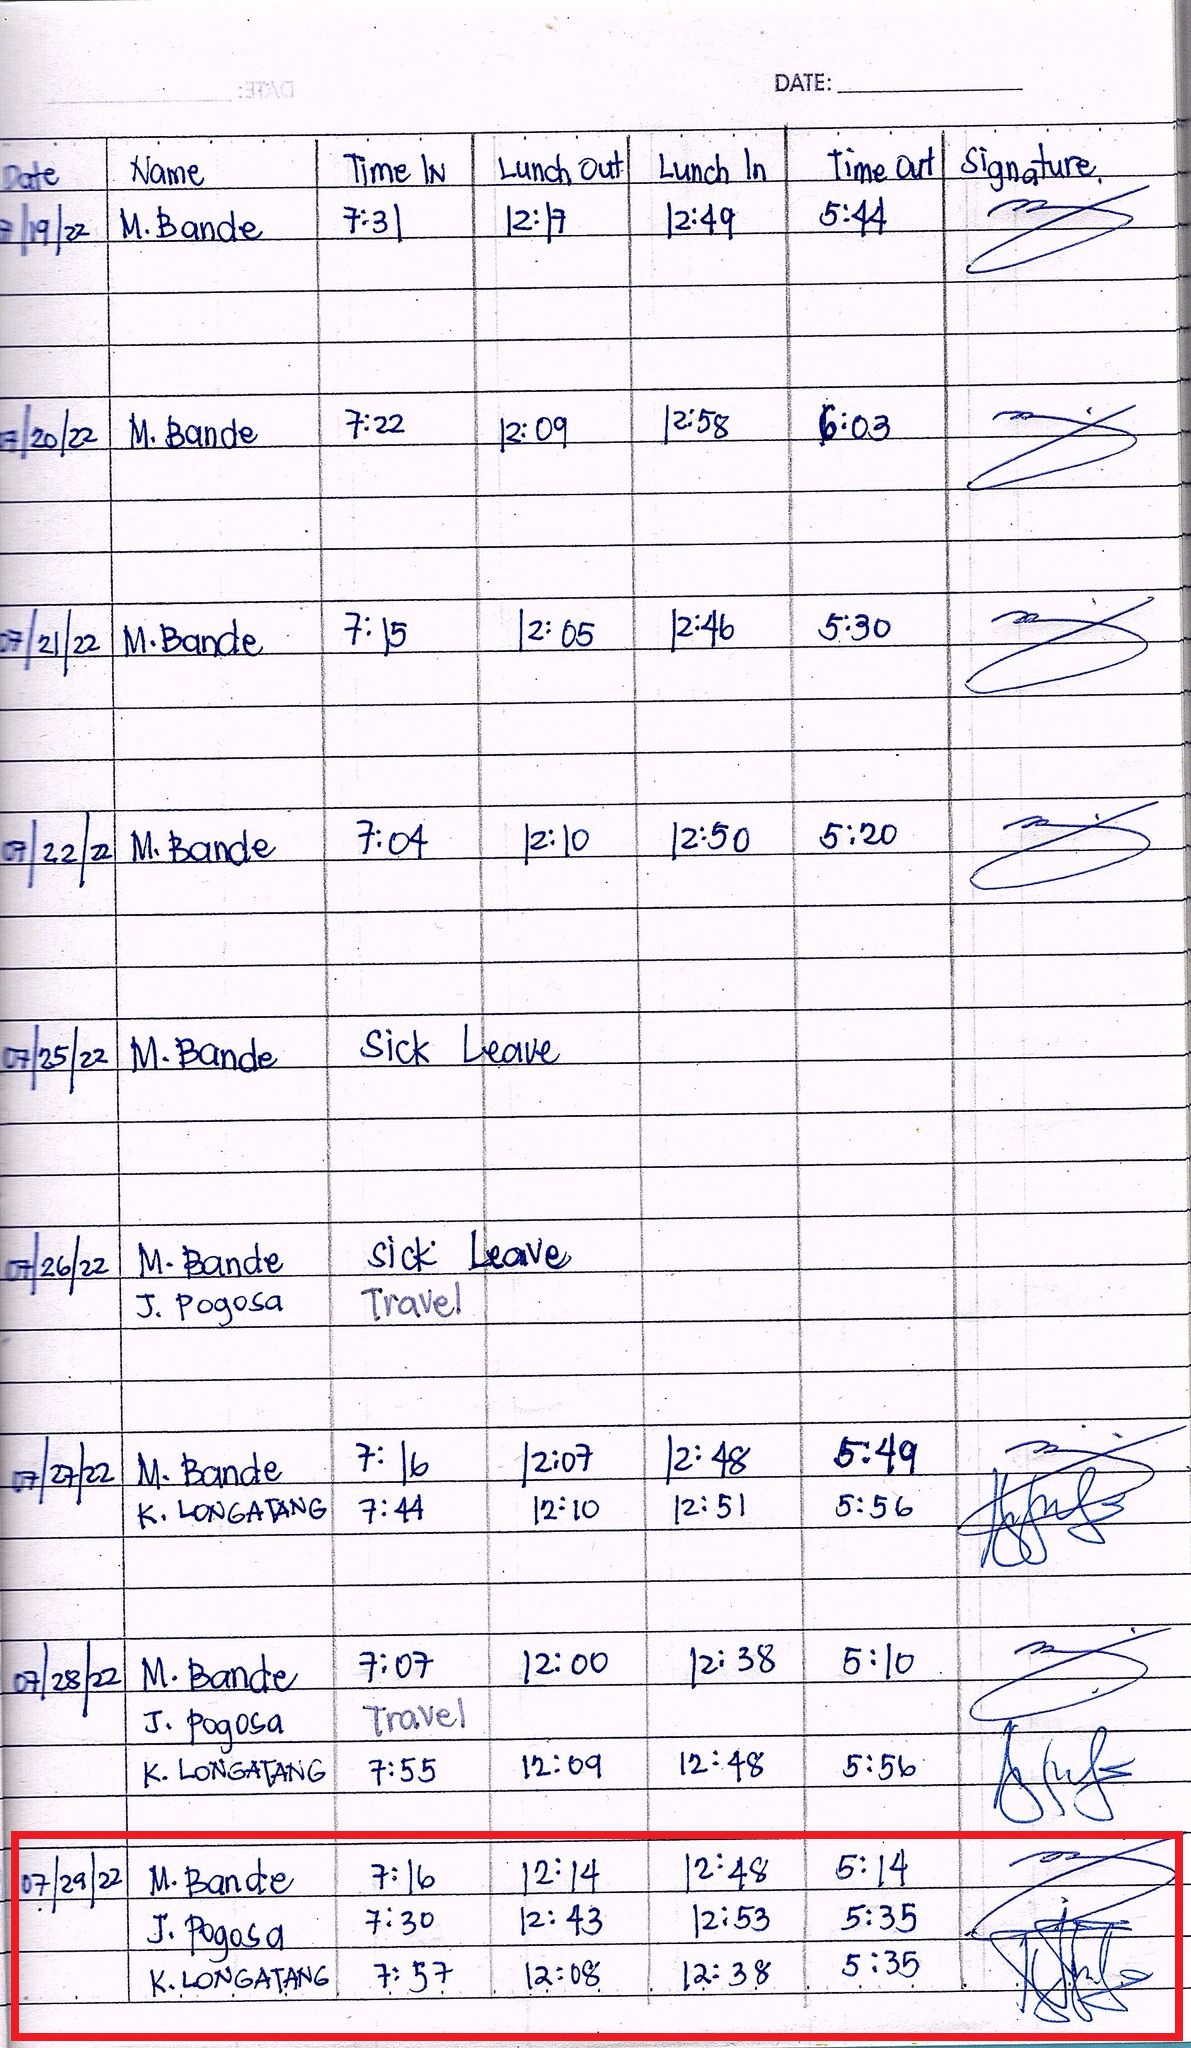 DATE:
Date Name Time IN Lunch Out Lunch In Time Out Signature.
7/19/22 M. Bande 7:31 12:17 12:49 5:44
07/20/22 M. Bande 7:22 12:09 12:58 6:03
07/21/22 M. Bande 7:15 12:05 12:46 5:30
07/22/22 M. Bande 7:04 12:10 12:50 5:20
07/25/22 M. Bande Sick Leave
07/26/22 M. Bande Sick Leave
J. Pogosa Travel
07/27/22 M. Bande 7:16 12:07 12:48 5:49
K. LONGATANG 7:44 12:10 12:51 5:56
07/28/22 M. Bande 7:07 12:00 12:38 5:10
J. Pogosa Travel
K. LONGATANG 7:55 12:09 12:48 5:56
07/29/22 M. Bande 7:16 12:14 12:48 5:14
J. Pogosa 7:30 12:43 12:53 5:35
K. LONGATANG 7:57 12:08 12:38 5:35